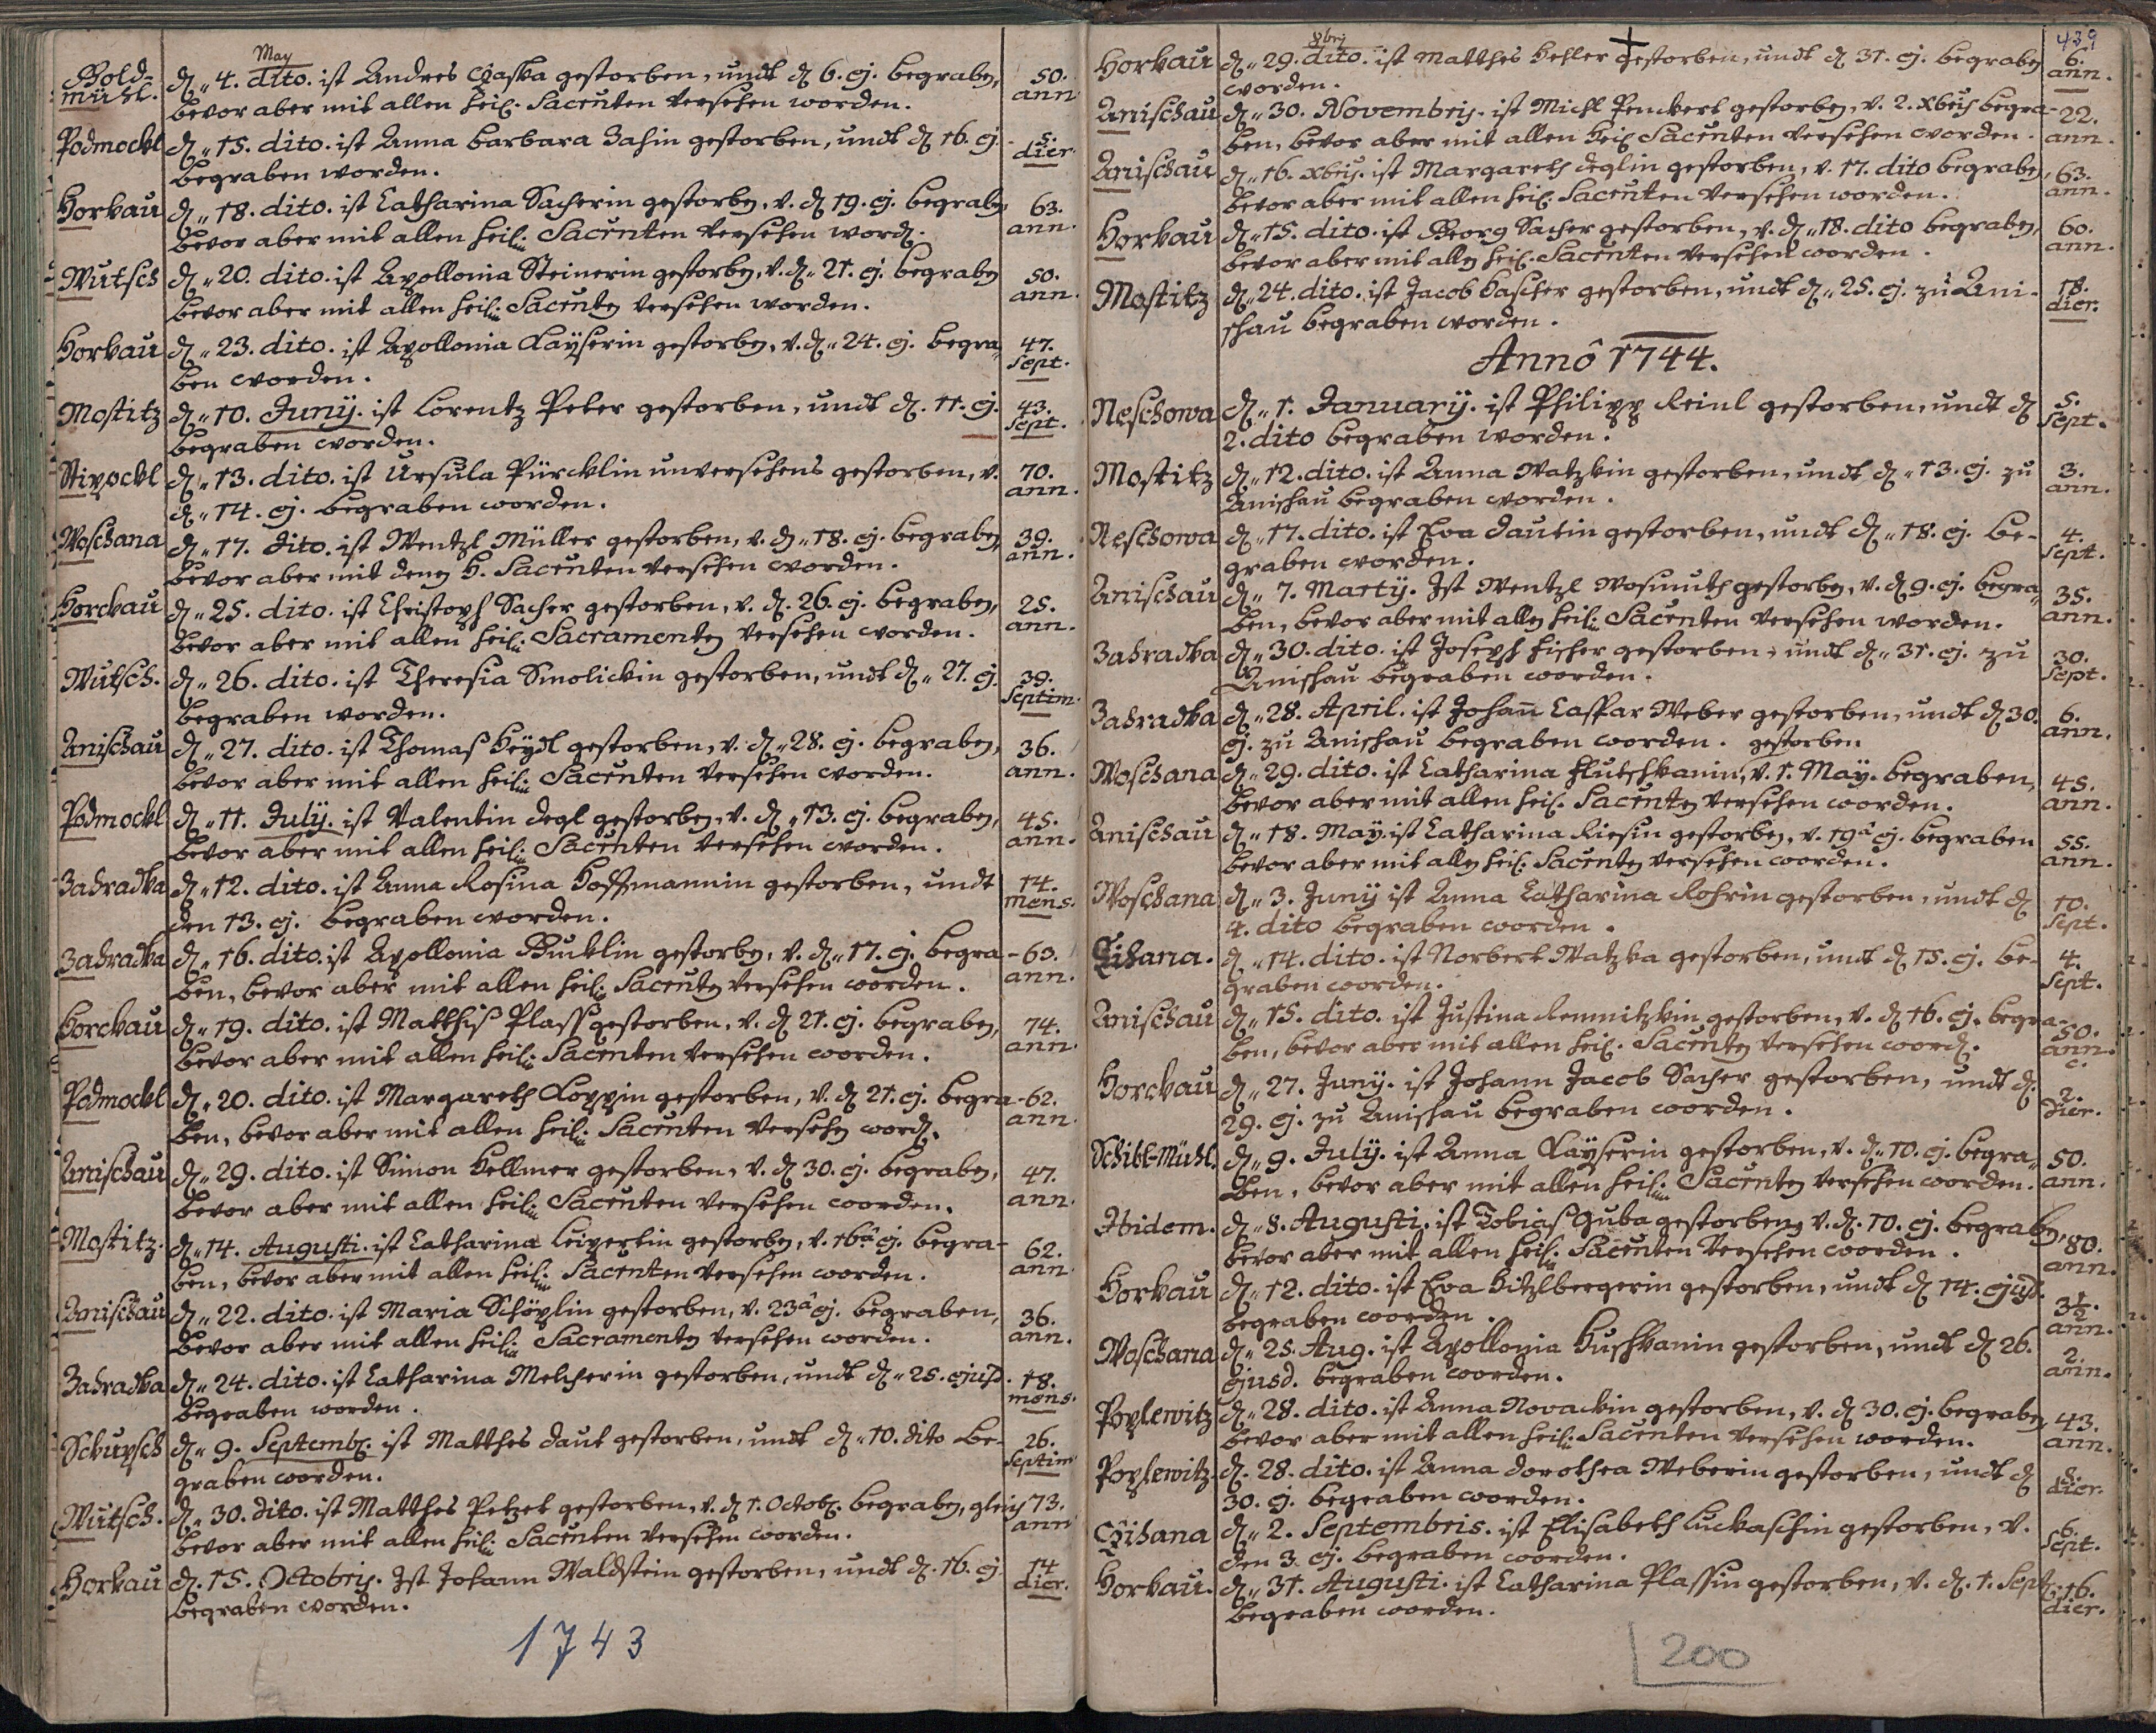 May
Gold- d. 4. dito. ist Andres Chaska gestorben, undt d 6. ej. begraben, 50.
mühl. bevor aber mit allen heil: Sacrnten versehen worden. ann
Podmockl d. 15. dito. ist Anna Barbara Zahin gestorben, undt d 16. ej. 5.
begraben worden. dier
Horkau d. 18. dito. ist Catharina Sacherin gestorben, v. d 19. ej. begraben, 63.
bevor aber mit allen heil: Sacrnten versehen word. ann.
Wutsch d. 20. dito. ist Apollonia Steinerin gestorben, v. d. 21. ej. begraben 50.
bevor aber mit allen heil: Sacrnten versehen worden. ann.
Horkau d. 23. dito. ist Apollonia Kayserin gestorben, v. d. 24. ej. begra- 47.
ben worden. Sept.
Mostitz d. 10. Junij. ist Lorentz Peter gestorben, undt d. 11. ej. 43.
begraben worden. Sept.
Stipockl d. 13. dito. ist Ursula Pürcklin unversehens gestorben, v. 70.
d. 14. ej. begraben worden. ann.
Woschana d. 17. dito. ist Wentzl Müller gestorben, v. d. 18. ej. begraben, 39.
bevor aber mit denen H. Sacrnten versehen worden. ann.
Horckau d. 25. dito. ist Christoph Sacher gestorben, v. d. 26. ej. begraben, 25.
bevor aber mit allen heil: Sacramenten versehen worden. ann.
Wutsch. d. 26. dito. ist Theresia Smolickin gestorben, undt d. 27. ej. 39.
begraben worden. Septim.
Anischau d. 27. dito. ist Thomas Heydl gestorben, v. d. 28. ej. begraben, 36.
bevor aber mit allen heil: Sacrnten versehen worden. ann.
Podmockl d. 11. July. ist Valentin Degl gestorben, v. d. 13. ej. begraben, 45.
bevor aber mit allen heil: Sacrnten versehen worden. ann.
Zahradka d. 12. dito. ist Anna Rosina Hoffmannin gestorben, undt 14.
den 13. ej. begraben worden. mens.
Zahradka d. 16. dito. ist Apollonia Gucklin gestorben, v. d. 17. ej. begra- 63.
ben, bevor aber mit allen heil: Sacrnten versehen worden. ann.
Horckau d. 19. dito. ist Matthis Plass gestorben, v. d 21. ej. begraben, 74.
bevor aber mit allen heil: Sacrnten versehen worden. ann.
Podmockl d. 20. dito. ist Margareth Koppin gestorben, v. d 21. ej. begra- 62.
ben, bevor aber mit allen heil: Sacrnten versehen word. ann.
Anischau d. 29. dito. ist Simon Hellmer gestorben, v. d 30. ej. begraben, 47.
bevor aber mit allen heil: Sacrnten versehen worden. ann.
Mostitz. d. 14. Augusti. ist Catharina Leipertin gestorben, v. 16ª ej. begra- 62.
ben, bevor aber mit allen heil: Sacrnten versehen worden. ann.
Anischau d. 22. dito. ist Maria Schöplin gestorben, v. 23ª ej. begraben, 36.
bevor aber mit allen heil: Sacramenten versehen worden. ann.
Zahradka d. 24. dito. ist Catharina Melcherin gestorben, undt d. 25. ejusd. 18.
begraben worden. mens.
Schupsch d. 9. Septemb. ist Matthes Daut gestorben, undt d. 10. dito be- 26.
graben worden. Septim
Wutsch. d. 30. dito. ist Matthes Petzet gestorben, v. d 1. Octob. begraben, gleich 73.
bevor aber mit allen heil: Sacrnten versehen worden. ann
Horkau d. 15. Octobris. Ist Johann Waldstein gestorben, undt d. 16. ej. 14
begraben worden. dier.
1743
439
8bris
Horkau d. 29. dito. ist Matthes Hessler gestorben, undt d 31. ej. begraben 6.
worden. ann.
Anischau d. 30. Novembris. ist Michl Penckert gestorben, v. 2. Xbris begra- 22.
ben, bevor aber mit allen heil Sacrnten versehen worden. ann.
Anischau d. 16. Xbris. ist Margareth Deglin gestorben, v. 17. dito begraben, 63.
bevor aber mit allen heil: Sacrnten versehen worden. ann.
Horkau d. 15. dito. ist Georg Sacher gestorben, v. d. 18. dito begraben, 60.
bevor aber mit allen heil: Sacrnten versehen worden. ann.
Mostitz d. 24. dito. ist Jacob Hascher gestorben, undt d. 25. ej. zu Ani- 18.
schau begraben worden. dier.
Annô 1744.
Neschowa d. 1. January. ist Philipp Reinl gestorben, undt d 5.
2. dito begraben worden. Sept.
Mostitz d. 12. dito. ist Anna Watzkin gestorben, undt d. 13. ej. zu 3.
Anischau begraben worden. ann.
Neschowa d. 17. dito. ist Eva Dautin gestorben, undt d. 18. ej. be- 4.
graben worden. Sept.
Anischau d. 7. Martij. Ist Wentzl Wosmuth gestorben, v. d 9. ej. begra- 35.
ben, bevor aber mit allen heil: Sacrnten versehen worden. ann.
Zahradka d. 30. dito. ist Joseph Fischer gestorben, undt d. 31. ej. zu 30.
Anischau begraben worden. Sept.
Zahradka d. 28. April. ist Johann Caspar Weber gestorben, undt d 30. 6.
ej. zu Anischau begraben worden. gestorben ann.
Woschana d. 29. dito. ist Catharina Hlutschkanin, v. 1. May. begraben, 45.
bevor aber mit allen heil. Sacrnten versehen worden. ann.
Anischau d. 18. May. ist Catharina Riesin gestorben, v. 19ª ej. begraben 55.
bevor aber mit allen heil: Sacrnten versehen worden. ann.
Woschana d. 3. Juny ist Anna Catharina Rohrin gestorben, undt d 10.
4. dito begraben worden. Sept.
Tihana. d. 14. dito. ist Norbert Watzka gestorben, undt d 15. ej. be- 4.
graben worden. Sept.
Anischau d. 15. dito. ist Justina Remnitzkin gestorben, v. d 16. ej. begra- 50.
ben, bevor aber mit allen heil. Sacrnten versehen word. ann.
c.
Horckau d. 27. Juny. ist Johann Jacob Sacher gestorben, undt d. 2.
29. ej. zu Anischau begraben worden. dier.
Schibl-Mühl. d. 9. July. ist Anna Kayserin gestorben, v. d. 10. ej. begra- 50.
ben, bevor aber mit allen heil: Sacrnten versehen worden. ann.
Ibidem. d. 8. Augusti. ist Tobias Guba gestorben, v. d. 10. ej. begraben, 80.
bevor aber mit allen heil: Sacrnten versehen worden. ann.
Horkau d. 12. dito. ist Eva Hitzlbergerin gestorben, undt d 14. ejusd. 3½.
begraben worden. ann.
Woschana d. 25. Aug. ist Apollonia Huschkanin gestorben, undt d 26. 2.
ejusd. begraben worden. ann.
Poplewitz d. 28. dito. ist Anna Novackin gestorben, v. d 30. ej. begraben, 43.
bevor aber mit allen heil: Sacrnten versehen worden. ann.
Poplewitz. d. 28. dito. ist Anna Dorothea Weberin gestorben, undt d 8.
30. ej. begraben worden. dier.
Tihana d. 2. Septembris. ist Elisabeth Luckaschin gestorben, v. 6.
den 3 ej. begraben worden. Sept.
Horkau. d. 31. Augusti. ist Catharina Plassin gestorben, v. d. 1. Sept. 16.
begraben worden. dier.
200